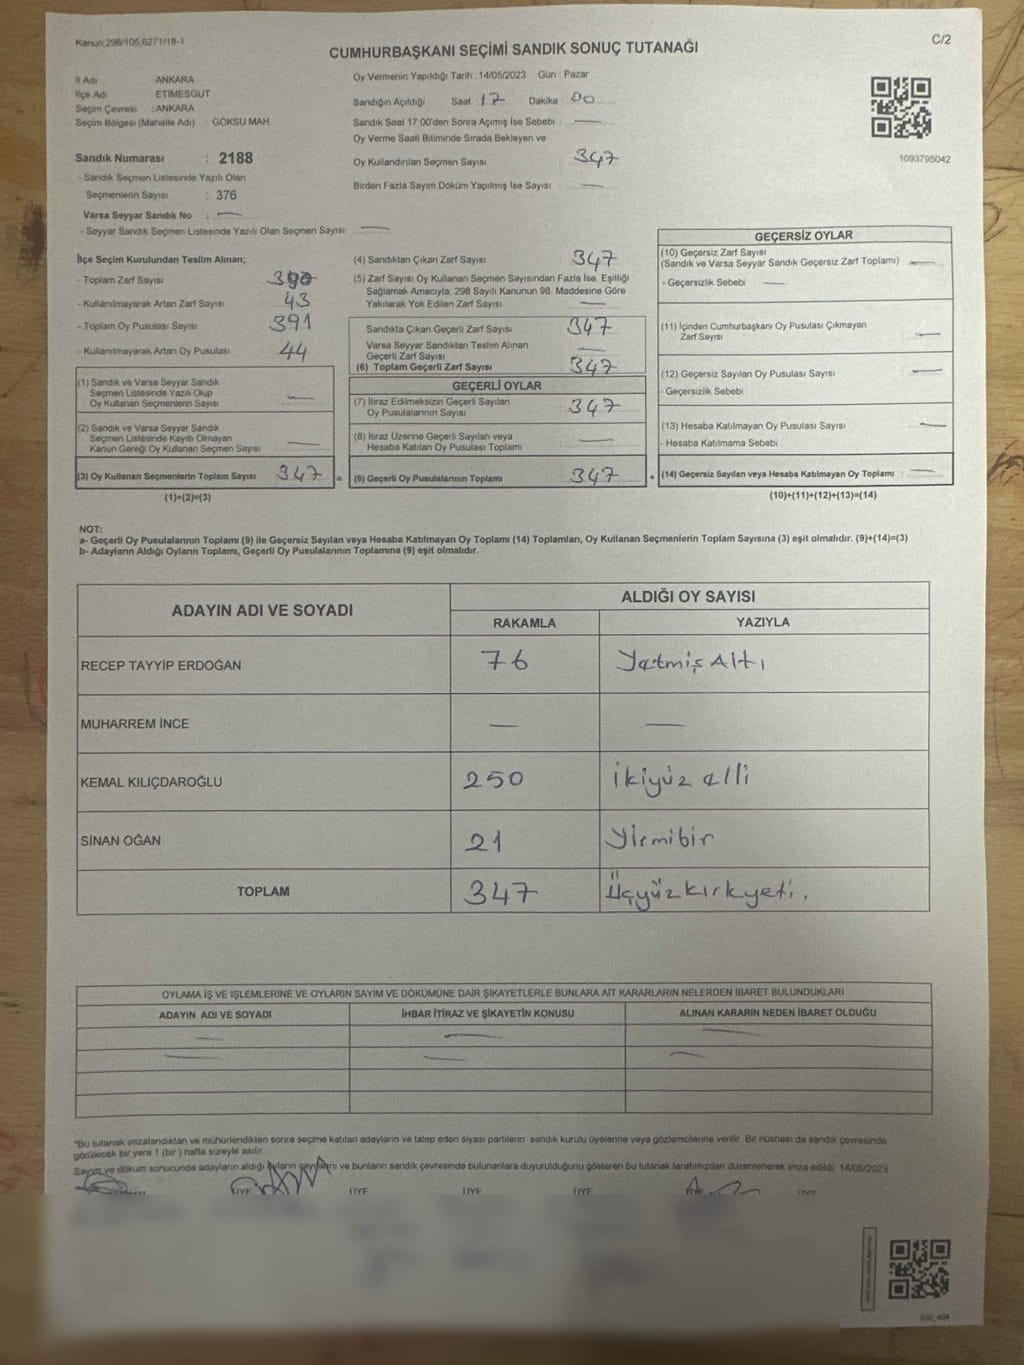 Kanun:298/105,6271/18-1
C/2
CUMHURBAŞKANI SEÇİMİ SANDIK SONUÇ TUTANAĞI
İl Adı ANKARA
İlçe Adı ETİMESGUT
Seçim Çevresi :ANKARA
Seçim Bölgesi (Mahalle Adı) : GÖKSU MAH.
Sandık Numarası : 2188
- Sandık Seçmen Listesinde Yazılı Olan
Seçmenlerin Sayısı : 376
Varsa Seyyar Sandık No : —
- Seyyar Sandık Seçmen Listesinde Yazılı Olan Seçmen Sayısı: —
Oy Vermenin Yapıldığı Tarih :14/05/2023 Gün : Pazar
Sandığın Açıldığı Saat 17 Dakika 00
Sandık Saat 17:00'den Sonra Açımış İse Sebebi : —
Oy Verme Saati Bitiminde Sırada Bekleyen ve
Oy Kullandırılan Seçmen Sayısı : 347
Birden Fazla Sayım Döküm Yapılmış İse Sayısı : —
1093795042
İlçe Seçim Kurulundan Teslim Alınan;
- Toplam Zarf Sayısı 390
- Kullanılmayarak Artan Zarf Sayısı 43
- Toplam Oy Pusulası Sayısı 391
- Kullanılmayarak Artan Oy Pusulası 44
(1) Sandık ve Varsa Seyyar Sandık
Seçmen Listesinde Yazılı Olup
Oy Kullanan Seçmenlerin Sayısı —
(2) Sandık ve Varsa Seyyar Sandık
Seçmen Listesinde Kayıtlı Olmayan
Kanun Gereği Oy Kullanan Seçmen Sayısı —
(3) Oy Kullanan Seçmenlerin Toplam Sayısı 347 =
(1)+(2)=(3)
(4) Sandıktan Çıkan Zarf Sayısı 347
(5) Zarf Sayısı Oy Kullanan Seçmen Sayısından Fazla İse, Eşitliği
Sağlamak Amacıyla; 298 Sayılı Kanunun 98. Maddesine Göre
Yakılarak Yok Edilen Zarf Sayısı —
Sandıkta Çıkan Geçerli Zarf Sayısı 347
Varsa Seyyar Sandıktan Teslim Alınan
Geçerli Zarf Sayısı —
(6) Toplam Geçerli Zarf Sayısı 347
GEÇERLİ OYLAR
(7) İtiraz Edilmeksizin Geçerli Sayılan
Oy Pusulalarının Sayısı : 347
(8) İtiraz Üzerine Geçerli Sayılan veya
Hesaba Katılan Oy Pusulası Toplamı : —
(9) Geçerli Oy Pusulalarının Toplamı : 347 +
GEÇERSİZ OYLAR
(10) Geçersiz Zarf Sayısı
(Sandık ve Varsa Seyyar Sandık Geçersiz Zarf Toplamı) : —
- Geçersizlik Sebebi : —
(11) İçinden Cumhurbaşkanı Oy Pusulası Çıkmayan
Zarf Sayısı : —
(12) Geçersiz Sayılan Oy Pusulası Sayısı : —
- Geçersizlik Sebebi
(13) Hesaba Katılmayan Oy Pusulası Sayısı : —
- Hesaba Katılmama Sebebi
(14) Geçersiz Sayılan veya Hesaba Katılmayan Oy Toplamı : —
(10)+(11)+(12)+(13)=(14)
NOT:
a- Geçerli Oy Pusulalarının Toplamı (9) ile Geçersiz Sayılan veya Hesaba Katılmayan Oy Toplamı (14) Toplamları, Oy Kullanan Seçmenlerin Toplam Sayısına (3) eşit olmalıdır. (9)+(14)=(3)
b- Adayların Aldığı Oyların Toplamı, Geçerli Oy Pusulalarının Toplamına (9) eşit olmalıdır.
ADAYIN ADI VE SOYADI ALDIĞI OY SAYISI
RAKAMLA YAZIYLA
RECEP TAYYİP ERDOĞAN 76 Yetmiş Altı
MUHARREM İNCE — —
KEMAL KILIÇDAROĞLU 250 İkiyüz elli
SİNAN OĞAN 21 Yirmibir
TOPLAM 347 Üçyüz kırkyeti.
OYLAMA İŞ VE İŞLEMLERİNE VE OYLARIN SAYIM VE DÖKÜMÜNE DAİR ŞİKAYETLERLE BUNLARA AİT KARARLARIN NELERDEN İBARET BULUNDUKLARI
ADAYIN ADI VE SOYADI İHBAR İTİRAZ VE ŞİKAYETİN KONUSU ALINAN KARARIN NEDEN İBARET OLDUĞU
— — —
— — —
*Bu tutanak imzalandıktan ve mühürlendikten sonra seçime katılan adayların ve talep eden siyasi partilerin sandık kurulu üyelerine veya gözlemcilerine verilir. Bir nüshası da sandık çevresinde
görülecek bir yere 1 (bir ) hafta süreyle asılır.
Sayım ve döküm sonucunda adayların aldığı oyların sayılarını ve bunların sandık çevresinde bulunanlara duyurulduğunu gösteren bu tutanak tarafımızdan düzenlenerek imza edildi. 14/05/2023
ÜYE ÜYE ÜYE ÜYE